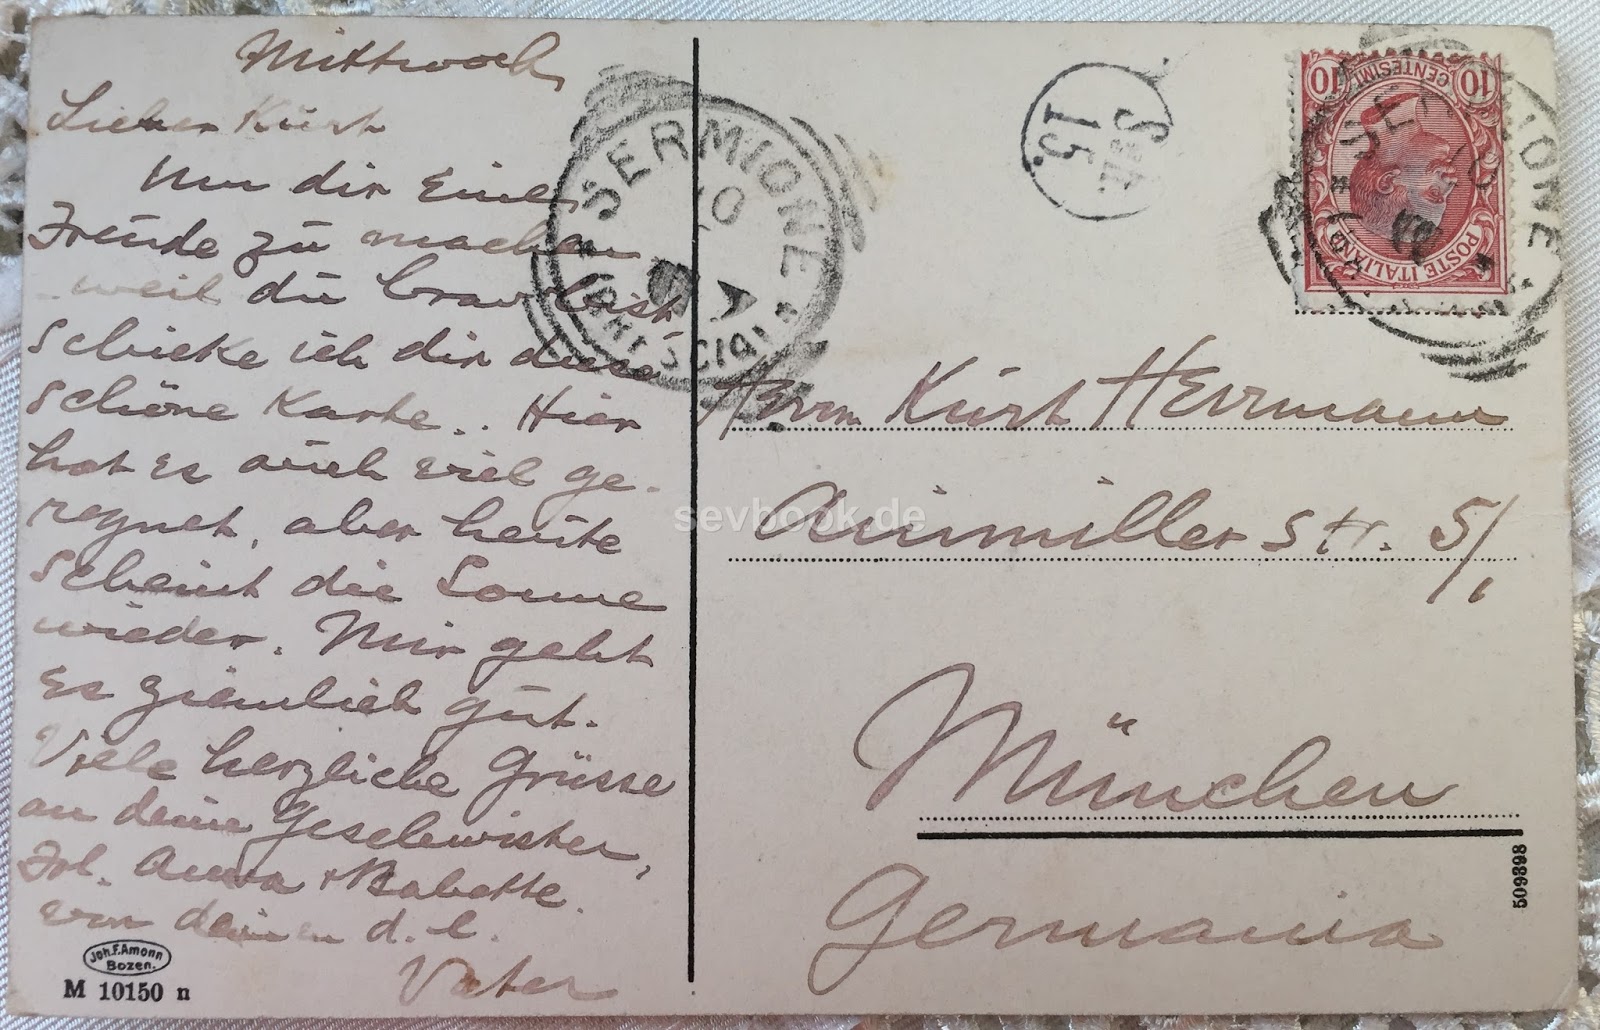 Mittwoch,
Lieber Kurt
Um dir eine
Freude zu machen
weil du brav bist,
schicke ich dir diese
schöne Karte.. Hier
hat es auch viel ge-
regnet, aber heute
scheint die Sonne
wieder. Mir geht
es ziemlich gut.
Viele herzliche Grüsse
an deine Geschwister,
Frl. Anna + Babette.
von deinem d. l.
Vater
Joh. F. Amonn
Bozen.
M 10150 n
SERMIONE
10
10
CENTESIMI
10
POSTE ITALIANE
Herrn Kurt Herrmann
sevbook.de
Ainmiller Str. 5/1
München
Germania
509398